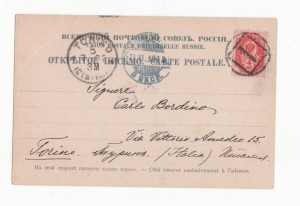 ВСЕМІРНЫЙ ПОЧТОВЫЙ СОЮЗЪ. РОССІЯ.
UNION POSTALE UNIVERSELLE. RUSSIE.
ОТКРЫТОЕ ПИСЬМО. — CARTE POSTALE.
TORINO
5
3M
Signore
Carlo Bordino
Via Vittorio Amedeo 15.
Torino. Туринъ. (Italia) Италія.
На этой сторонѣ пишется только адресъ. — Côté réservé exclusivement à l'adresse.